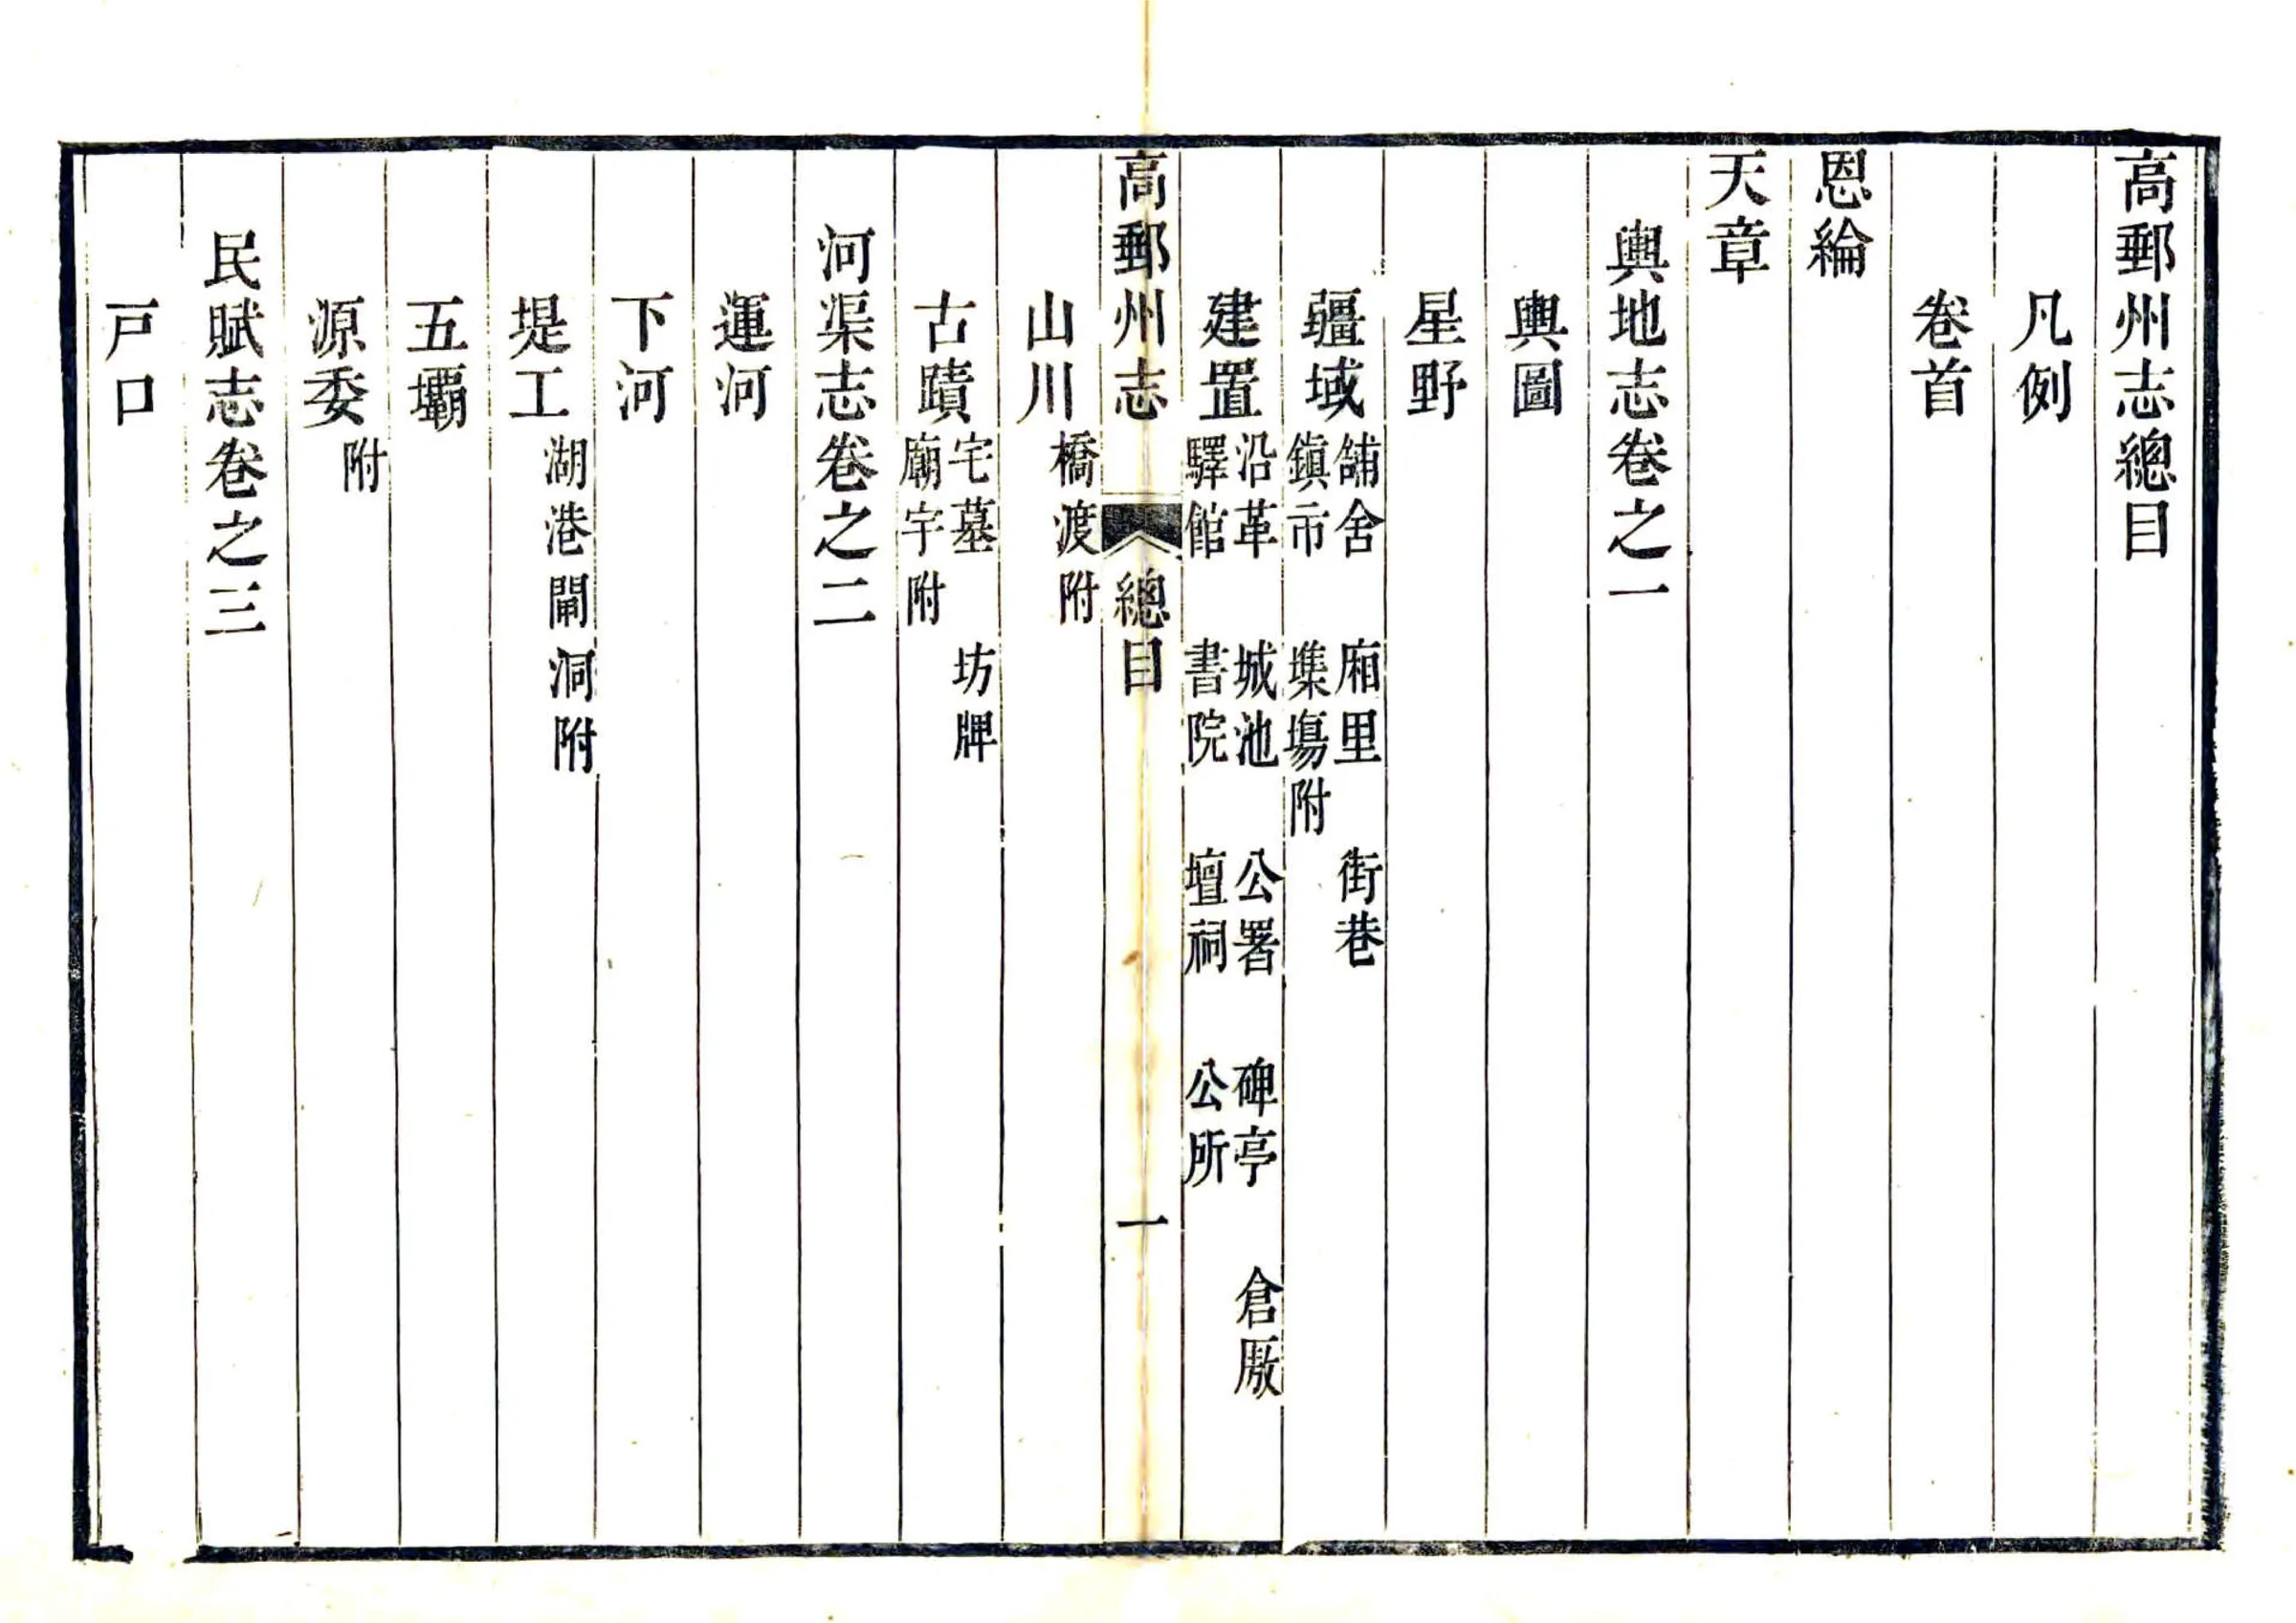 高郵州志總目
凡例
卷首
恩綸
天章
輿地志卷之一
輿圖
星野
疆域
舖舍 廂里 街巷
鎮市 集場附
建置
沿革 城池 公署 碑亭 倉厫
驛館 書院 壇祠 公所
高郵州志 總目 一
山川 橋渡附
古蹟
宅墓 坊牌
廟宇附
河渠志卷之二
運河
下河
堤工 湖港閘洞附
五壩
源委 附
民賦志卷之三
戸口